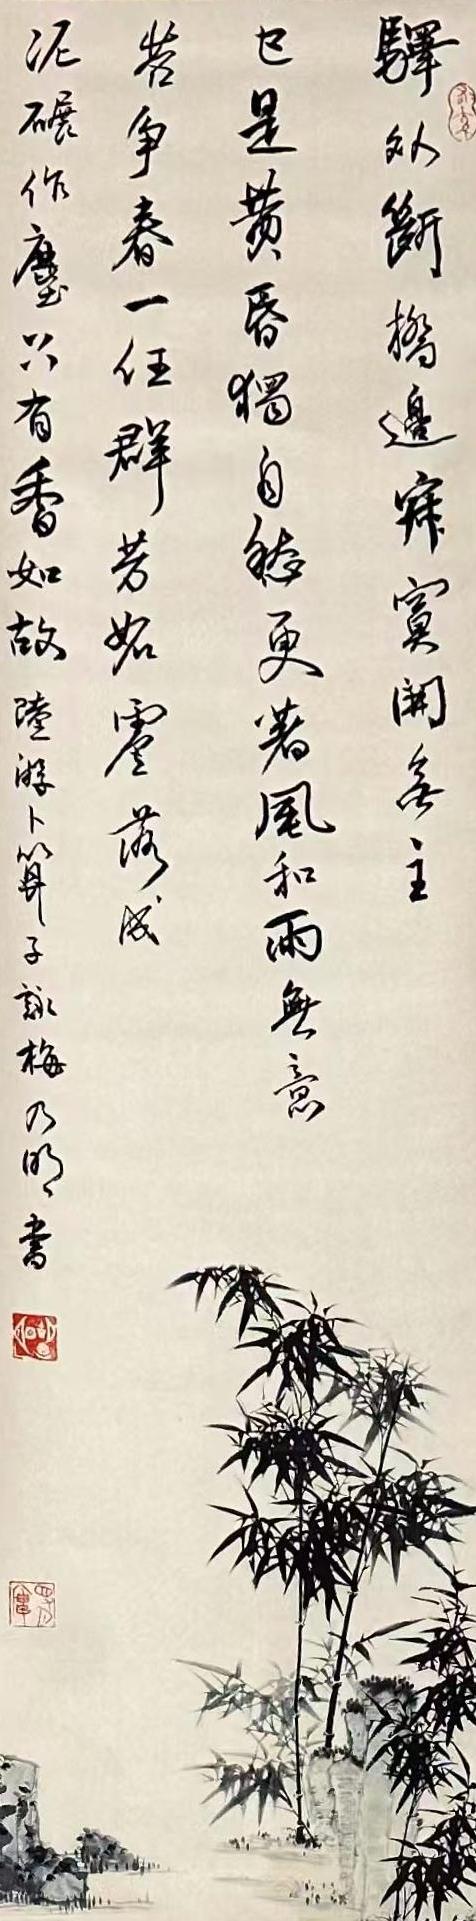 驛外斷橋邊寂寞開無主
已是黄昏獨自愁更著風和雨無意
苦争春一任群芳妒零落成
泥碾作塵只有香如故 陸游卜算子詠梅 乃明书